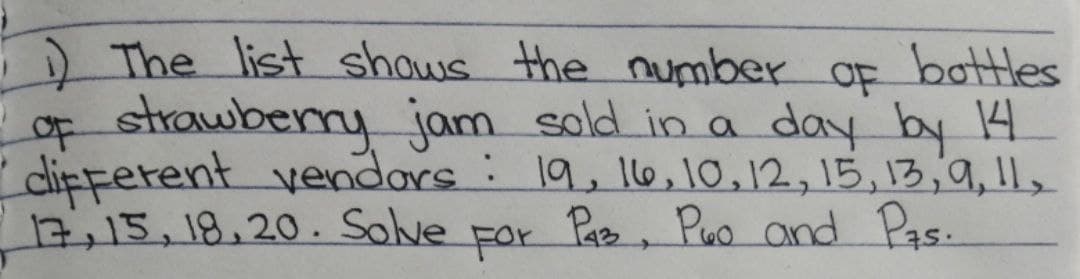 1) The list shows the number of bottles
of strawberry jam sold in a day by 14
different vendors : 19, 16, 10, 12, 15, 13, 9, 11,
17, 15, 18, 20. Solve for P43, P60 and P75.